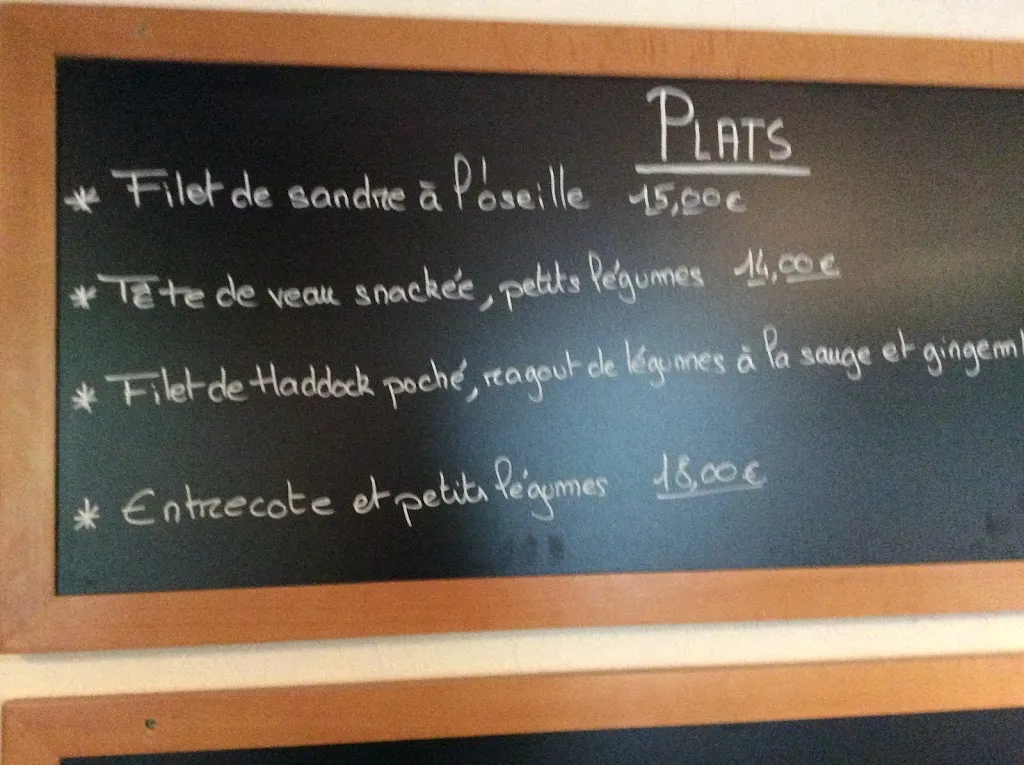 PLATS
* Filet de sandre à l'oseille 15,00€
* Tête de veau snackée, petits légumes 14,00€
* Filet de Haddock poché, ragout de légumes à la sauge et gingem
* Entrecote et petits légumes 18,00€